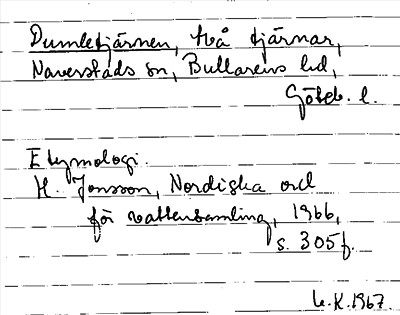 Dumletjärnen, två tjärnar,
Naverstads sn, Bullarens hd,
Göteb. l.
Etymologi.
H. Jonsson, Nordiska ord
för vattensamling, 1966,
s. 305f.
1967.